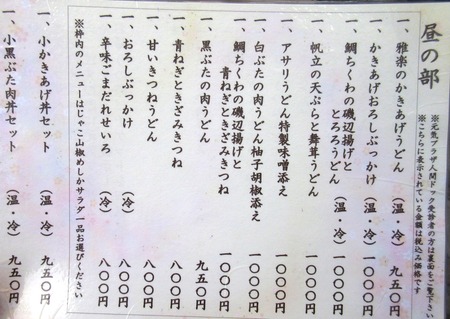 昼の部
※元気プラザ人間ドック受診者の方は裏面をご覧下さい
※こちらに表示されている金額は税込み価格です
一、雅楽のかきあげうどん (温・冷) 九五〇円
一、かきあげおろしぶっかけ (冷) 一〇〇〇円
一、鯛ちくわの磯辺揚げと
とろろうどん (温・冷) 一〇〇〇円
一、帆立の天ぷらと舞茸うどん 一〇〇〇円
一、アサリうどん特製味噌添え 一〇〇〇円
一、白ぶたの肉うどん柚子胡椒添え 一〇〇〇円
一、鯛ちくわの磯辺揚げと
青ねぎときざみきつね 一〇〇〇円
一、黒ぶたの肉うどん 九五〇円
一、青ねぎときざみきつね 八〇〇円
一、甘いきつねうどん 八〇〇円
一、おろしぶっかけ (冷) 八〇〇円
一、辛味ごまだれせいろ (冷) 八〇〇円
※枠内のメニューはじゃこ山椒めしかサラダ一品お選びください
一、小かきあげ丼セット (温・冷) 九五〇円
一、小黒ぶた肉丼セット (温・冷) 九五〇円